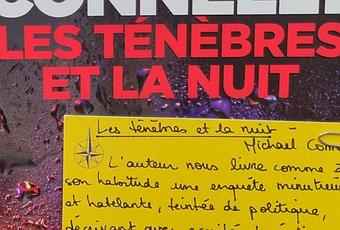 CONNELLY
LES TÉNÈBRES
ET LA NUIT
Les ténèbres et la nuit -
Michael Conn
L'auteur nous livre comme à
son habitude une enquête minutieu
et haletante, teintée de politique,